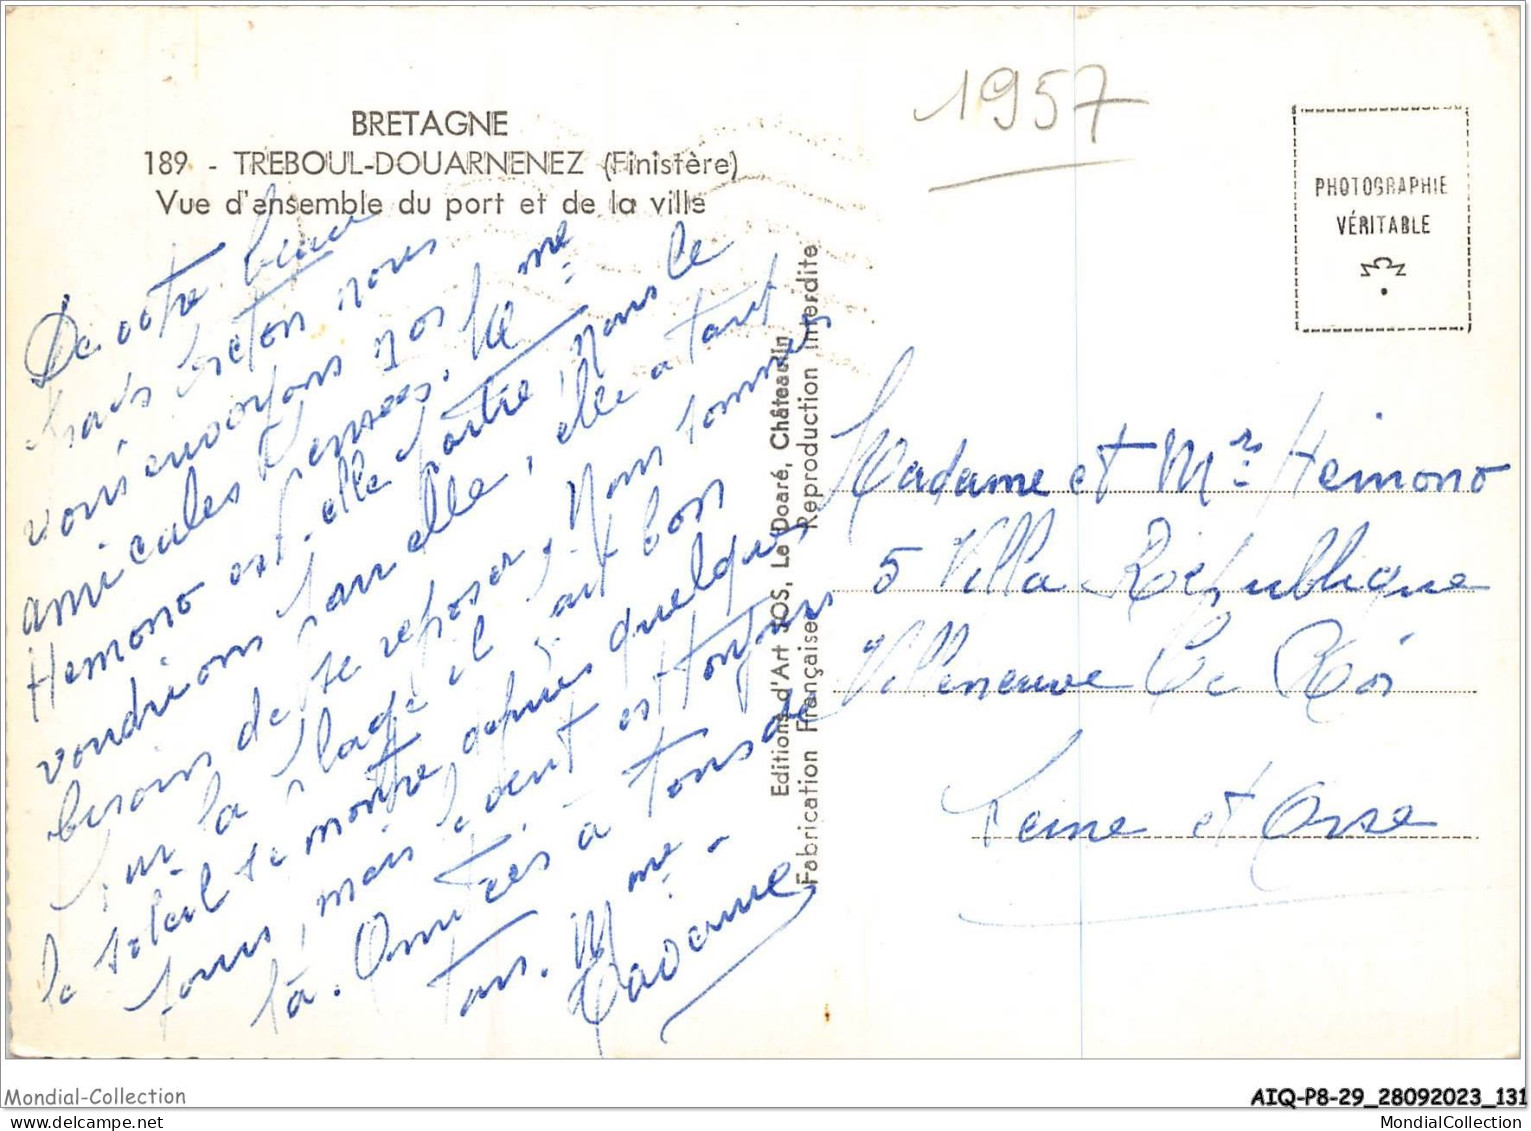 BRETAGNE
189 - TREBOUL-DOUARNENEZ (Finistère)
Vue d'ensemble du port et de la ville
De votre beau
breton nous
vous envoyons nos
amicales pensées. Mme
Hemono est-elle partie, nous le
voudrions pour elle, elle a tant
besoin de se reposer, nous sommes
sur la plage il fait bon
le soleil se montre depuis quelques
jours, mais le vent est toujours
là. Amitiés à tous de
tous. Mme -
Editions d'Art JOS, Le Doaré, Châteaulin
Fabrication Française Reproduction Interdite
1957
PHOTOGRAPHIE
VÉRITABLE
Madame et Mr Hemono
5 Villa République
Villeneuve Le Roi
Seine et Oise
Mondial-Collection
AIQ-P8-29_28092023_131
www.delcampe.net
MondialCollection